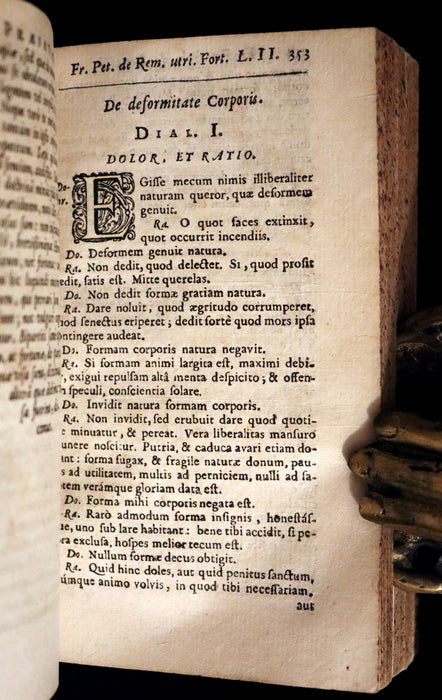 Fr. Pet. de Rem. utri. Fort. L. II. 353
De deformitate Corporis.
DIAL. I.
DOLOR, ET RATIO.
EGisse mecum nimis illiberaliter
naturam queror, quæ deformem
genuit.
Ra. O quot faces extinxit,
quot occurrit incendiis.
Do. Deformem genuit natura.
Ra. Non dedit, quod delectet. Si, quod prosit
dedit, satis est. Mitte querelas.
Do. Non dedit formæ gratiam natura.
Ra. Dare noluit, quod ægritudo corrumperet,
quod senectus eriperet; dedit fortè quod mors ipsa
contingere audeat.
Do. Formam corporis natura negavit.
Ra. Si formam animi largita est, maximi debi-
exigui repulsam altâ menta despicito; & offen-
speculi, conscientia solare.
Do. Invidit natura formam corporis.
Ra. Non invidit, sed erubuit dare quod quoti-
minuatur, & pereat. Vera liberalitas mansuro
unere noscitur. Putria, & caduca avari etiam do-
nt: forma fugax, & fragile naturæ donum, pau-
s ad utilitatem, multis ad perniciem, nulli ad sa-
tem verámque gloriam data est.
Do. Forma mihi corporis negata est.
Ra. Rarò admodum forma insignis, honestás-
e, uno sub lare habitant: bene tibi accidit, si pe-
ra exclusa, hospes melior tecum est.
Do. Nullum formæ decus obtigit.
Ra. Quid hinc doles, aut quid penitus sanctum,
úmque animo volvis, in quod tibi necessariam,
aut